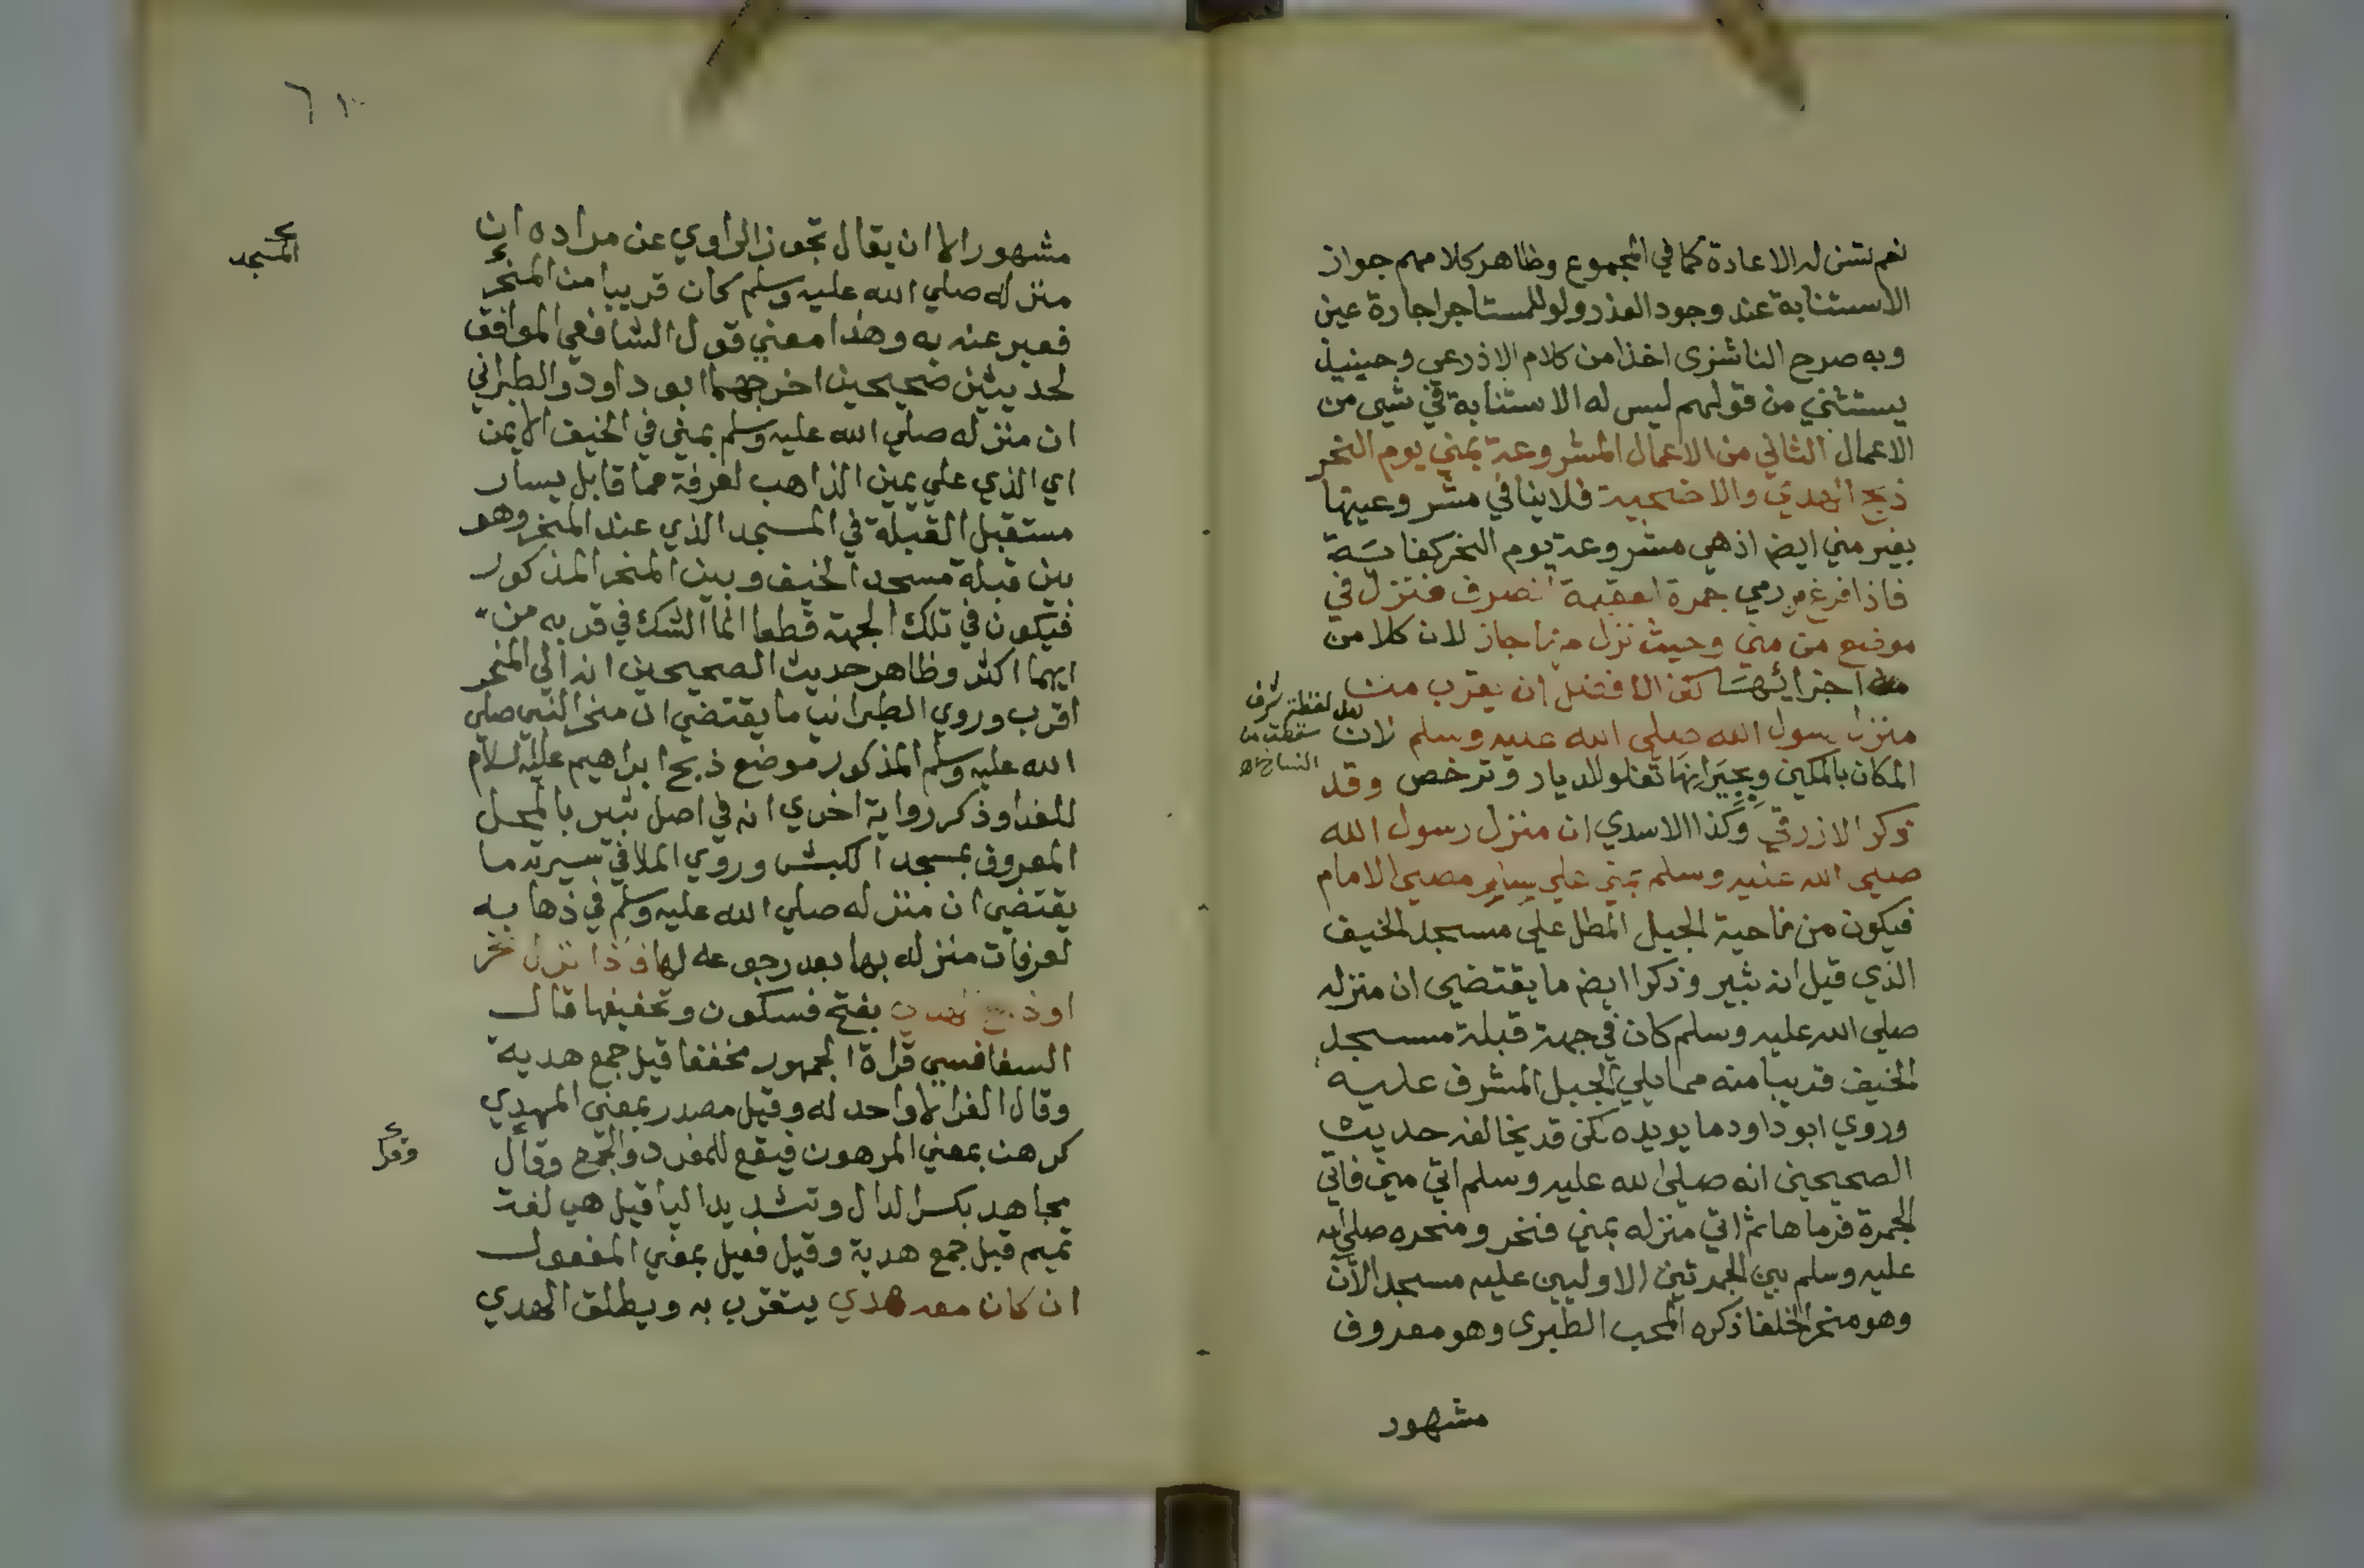 نعم تسن له الاعادة كما في المجموع وظاهر كلامهم جواز
الاستنابة عند وجود العذر ولو للمستاجر اجارة عين
وبه صرح الناشزى اخذا من كلام الاذرعي وحينيذ
يستثني من قولهم ليس له الاستنابة في شيى من
الاعمال الثاني من الاعمال المشروعة بمني يوم النحر
ذبح الهدي والاضحية فلا ينافي مشروعيتها
بغير مني ايضا اذ هي مشروعة يوم النحر كفا سنة
فاذا فرغ من رمي جمرة العقبة انصرف فنزل في
موضع من مني وحيث نزل منها جاز لان كلا من
اجزائها لكن الافضل ان يقرب من
منزل رسول الله صلي الله عليه وسلم لان
لعل لفظة شرف
سقطت من
الناسخ اه
المكان بالمكين وبجيرانها تغلو الديار وترخص وقد
ذكر الازرقي وكذا الاسدي ان منزل رسول الله
صلي الله عليه وسلم بمني علي يسار مصلي الامام
فيكون من ناحية الجبل المطل علي مسجد الخيف
الذي قيل انه ثبير وذكرا ايضا ما يقتضي ان منزله
صلي الله عليه وسلم كان في جهة قبلة مسجد
الخيف قريبا منه مما يلي الجبل المشرف عليه
وروي ابو داود ما يويده لكن قد يخالفه حديث
الصحيحين انه صلي الله عليه وسلم اتي مني فاتي
الجمرة فرماها ثم اتي منزله بمني فنحر ومنحره صلي الله
عليه وسلم بين الجمرتين الاوليين عليه مسجد الآن
وهو منحر الخلفا ذكره المحب الطبرى وهو معروف
مشهور
مشهور الا ان يقال تجوز الراوي عن مراده ان
منزله صلي الله عليه وسلم كان قريبا من المنحر
المسجد
فعبر عنه به وهذا معني قول الشافعي الموافق
لحديثين صحيحين اخرجهما ابو داود والطبراني
ان منزله صلي الله عليه وسلم بمني في الخيف الايمن
اي الذي علي يمين الذاهب لعرفة مما قابل يسار
مستقبل القبلة في المسجد الذي عند المنحر وهو
بين قبلة مسجد الخيف وبين المنحر المذكور
فيكون في تلك الجهة قطعا انما الشك في قربه من
ايهما اكثر وظاهر حديث الصحيحين انه الي المنحر
اقرب وروي الطبراني ما يقتضي ان منحر النبي صلي
الله عليه وسلم المذكور موضع ذبح ابراهيم عليه السلام
للفدا وذكر رواية اخري انه في اصل ثبير بالمحل
المعروف بمسجد الكبش وروي الملا في سيرته ما
يقتضي ان منزله صلي الله عليه وسلم في ذهابه
لعرفات منزله بها بعد رجوعه لها فاذا نزل نحر
او ذبح الهدي بفتح فسكون وتخفيفها قال
السفاقسي قراة الجمهور مخففا قيل جمع هدية
وقال الفرا لا واحد له وقيل مصدر بمعني المهدي
كرهن بمعني المرهون فيقع للمفرد والجمع وقال
وقرا
مجاهد بكسر الدال وتشديد اليا قيل هي لغة
تميم قيل جمع هدية وقيل فعيل بمعني المفعول
ان كان معه هدي يتقرب به ويطلق الهدي